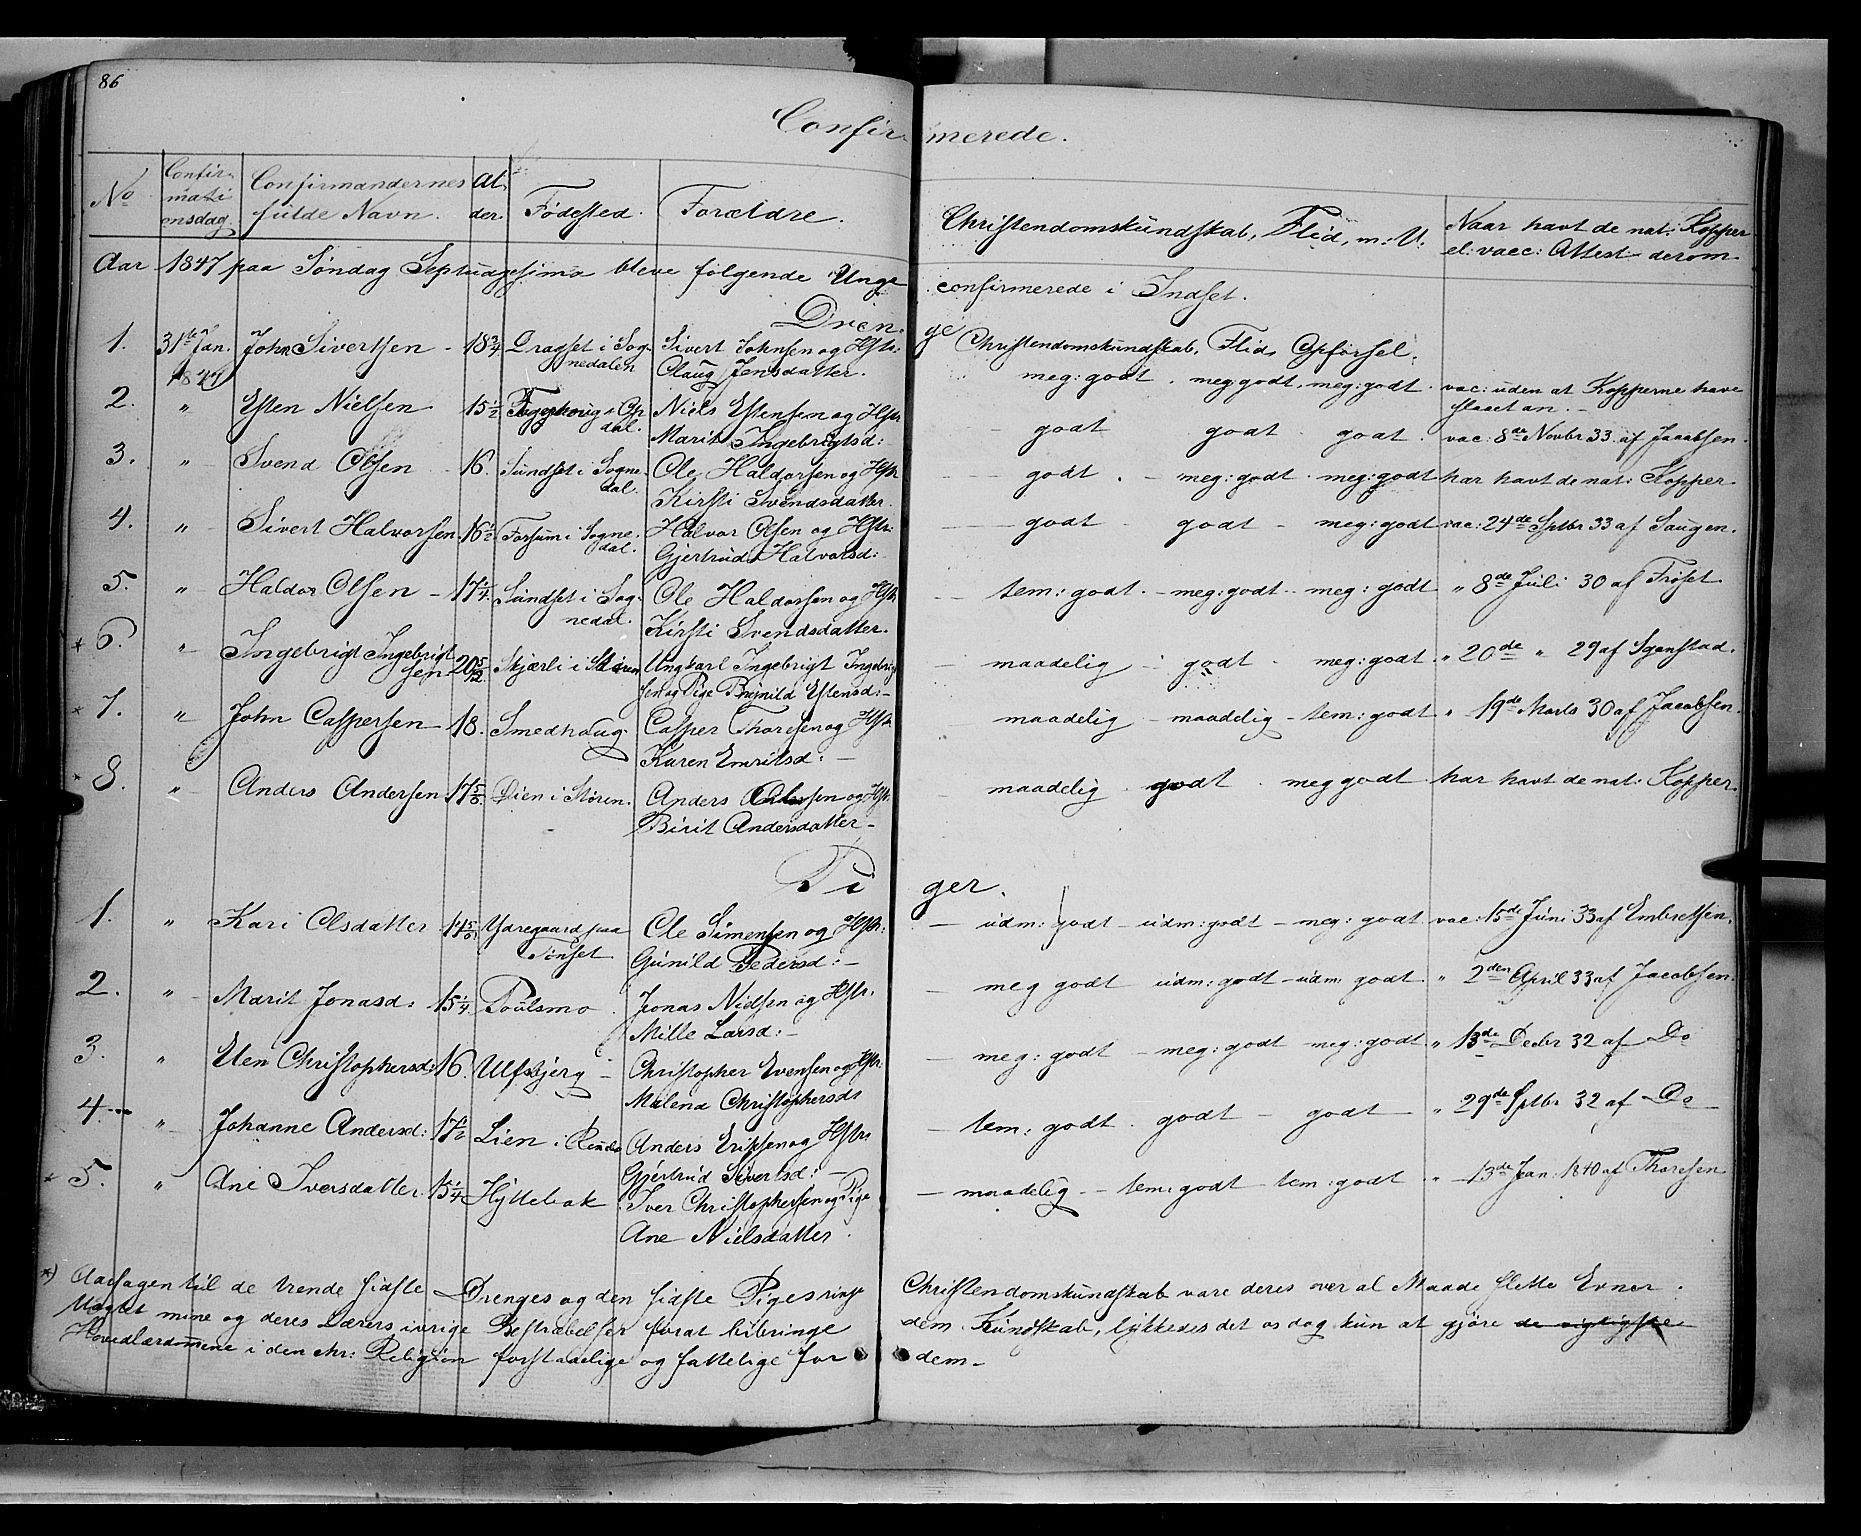 86
Confirmerede.
No Confirmationsdag Confirmandernes fulde Navn. Alder. Fødested. Forældre. Christendomskundskab, Flid, m: V. Naar havt de nat: Kopper el: vacc: Attest derom
Aar 1847 paa Søndag Septuagesima bleve følgende Unge confirmerede i Indset.
Drenge
Christendomskundskab, Flid, Opførsel.
1. 31te Jan. 1847 John Sivertsen - 18 3/4 Dragset i Sognedalen Sivert Johnsen og Hstr: Claug Jensdatter. meg: godt. meg: godt, meg: godt. vac: uden at Kopperne have slaaet an.
2. " Esten Nielsen 15 1/2 i Opdal. Niels Estensen og Hstr Marit Ingebrigtsd: - godt godt godt. vac: 8de Novbr 33 af Jacobsen.
3. " Svend Olsen 16. Sundset i Sognedal. Ole Haldorsen og Hstr Kirsti Svendsdatter. - godt. - meg: godt. meg: godt har havt de nat: Kopper
4. " Sivert Halvorsen 16 1/2 Forsum i Sognedal. Halvor Olsen og Hstr: Gjertrud Halvorsd: - godt. godt - meg: godt vac: 24de Sptbr 33 af Saugen.
5. " Haldor Olsen - 17 1/4. Sundset i Sognedal. Ole Haldorsen og Hstr Kirsti Svendsdatter. - tem: godt. - meg: godt - meg: godt " 8de Juli 30 af Frøset
* 6. " Ingebrigt Ingebrigtsen 20 5/12 Skjærli i Støren Ungkarl Ingebrigt Ingebrigtsen og Pige Brynild Estensd: - - maadelig - godt. meg: godt. " 20de " 29 af Sgenstad.
* 7. " John Caspersen - 18. Smedhaug Casper Thoresen og Hstr Karen Emritsd: - maadelig - maadelig - tem: godt " 19de Marts 30 af Jacobsen.
* 8. " Anders Andersen 17 5/6. Øien i Støren. Anders Olsen og Hstr. Birit Andersdatter - - maadelig. godt. meg godt har havt de nat: Kopper.
Piger.
1. " Kari Olsdatter 14 5/6. Ydregaard paa Tønset Ole Simensen og Hstr: Gunild Pedersd: - - udm: godt - udm: godt - meg: godt vac: 15de Juni 33 af Embretsen.
2. " Marit Jonasd: 15 1/4. Poulsmo. Jonas Nielsen og Hstr. Mille Larsd: - - meg godt udm: godt - udm: godt. " 2den April 33 af Jacobsen.
3. " Elen Christophersd: 16. Ulfsbjerg - Christopher Evensen og Hstr. Malena Christophersd: - meg: godt - meg: godt meg: godt " 13de Decbr 32 af Do
4. " Johanne Andersd: 17 1/2 Lien i Anders Eriksen og Hstr: Gjertrud Sivertsd: - - tem: godt. godt - godt " 29de Sptbr 32 af Do
* 5. " Ane Iversdatter. 15 1/4 Hyttebak Iver Christophersen og Pige Ane Nielsdatter. - maadelig - tem: godt - tem: godt " 13de Jan: 1840 af Thoresen
*) Aarsagen til de trende sidste Drenges og den sidste Piges ringe Christendomskundskab vare deres over al Maade slette Evner.
Uagtet mine og deres Lærers ivrige Bestræbelser forat bibringe dem Kundskab, lykkedes det os dog kun at gjøre de vigtigste
Hovedlærdomme i den chr: Religion forstaaelige og fattelige for dem -